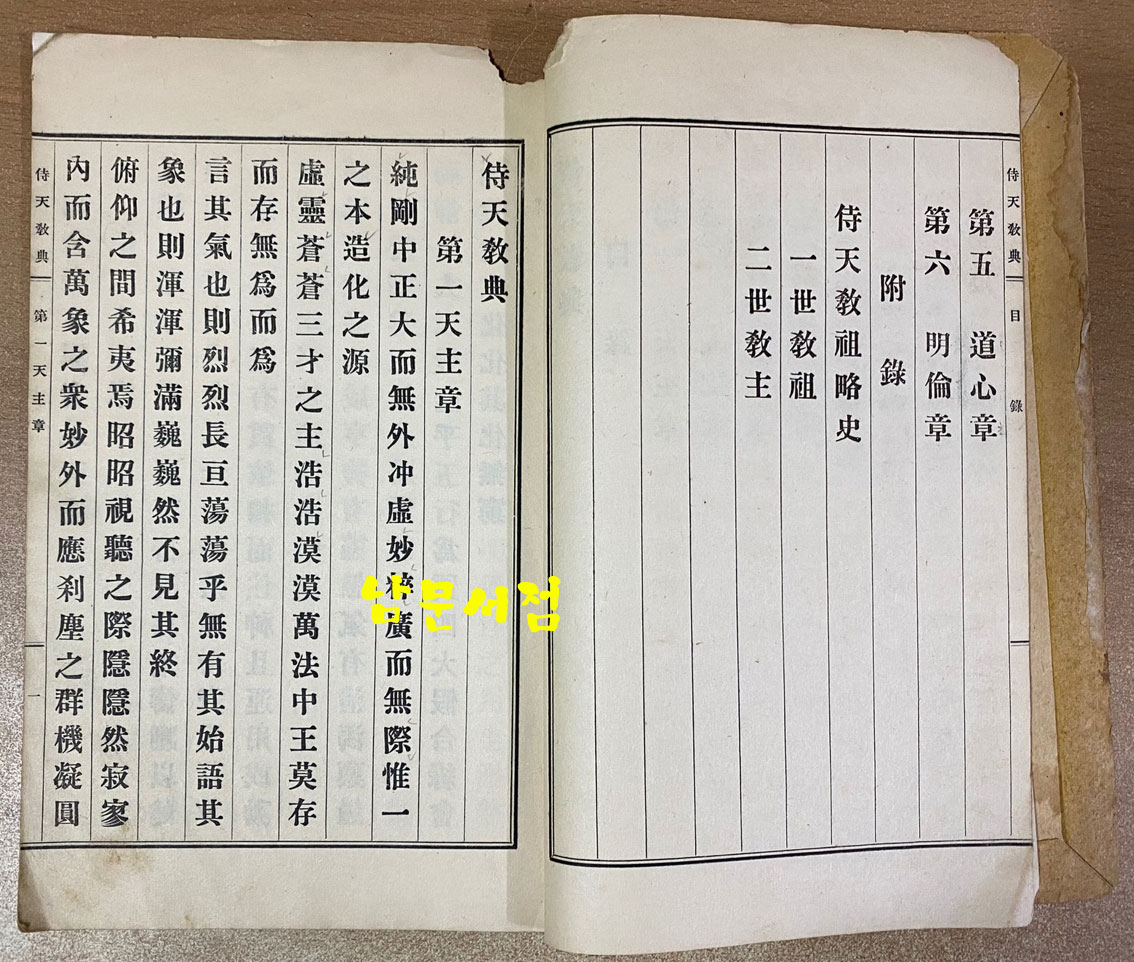 侍天敎典
目
錄
第五 道心章
第六 明倫章
附 錄
侍天敎祖略史
一世敎祖
二世敎主
侍天敎典
第一天主章
純剛中正大而無外冲虛妙粹廣而無際惟一
之本造化之源
虛靈蒼蒼三才之主浩浩漠漠萬法中王莫存
而存無爲而爲
言其氣也則烈烈長亘蕩蕩乎無有其始語其
象也則渾渾彌滿巍巍然不見其終
俯仰之間希夷焉昭昭視聽之際隱隱然寂寥
內而含萬象之衆妙外而應刹塵之群機凝圓
侍天敎典
第一天主章
一
남문서점